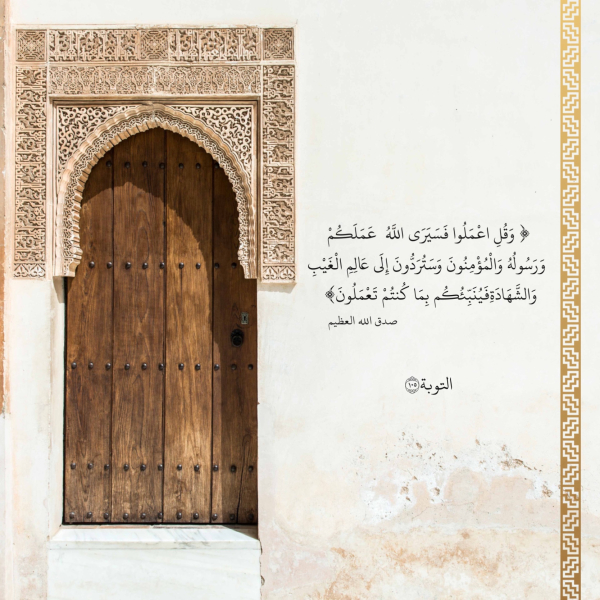 ﴿ وَقُلِ اعْمَلُوا فَسَيَرَى اللَّهُ عَمَلَكُمْ
وَرَسُولُهُ وَالْمُؤْمِنُونَ وَسَتُرَدُّونَ إِلَى عَالِمِ الْغَيْبِ
وَالشَّهَادَةِفَيُنَبِّئُكُم بِمَا كُنتُمْ تَعْمَلُونَ﴾
صدق الله العظيم
التوبة ۝١٠٥